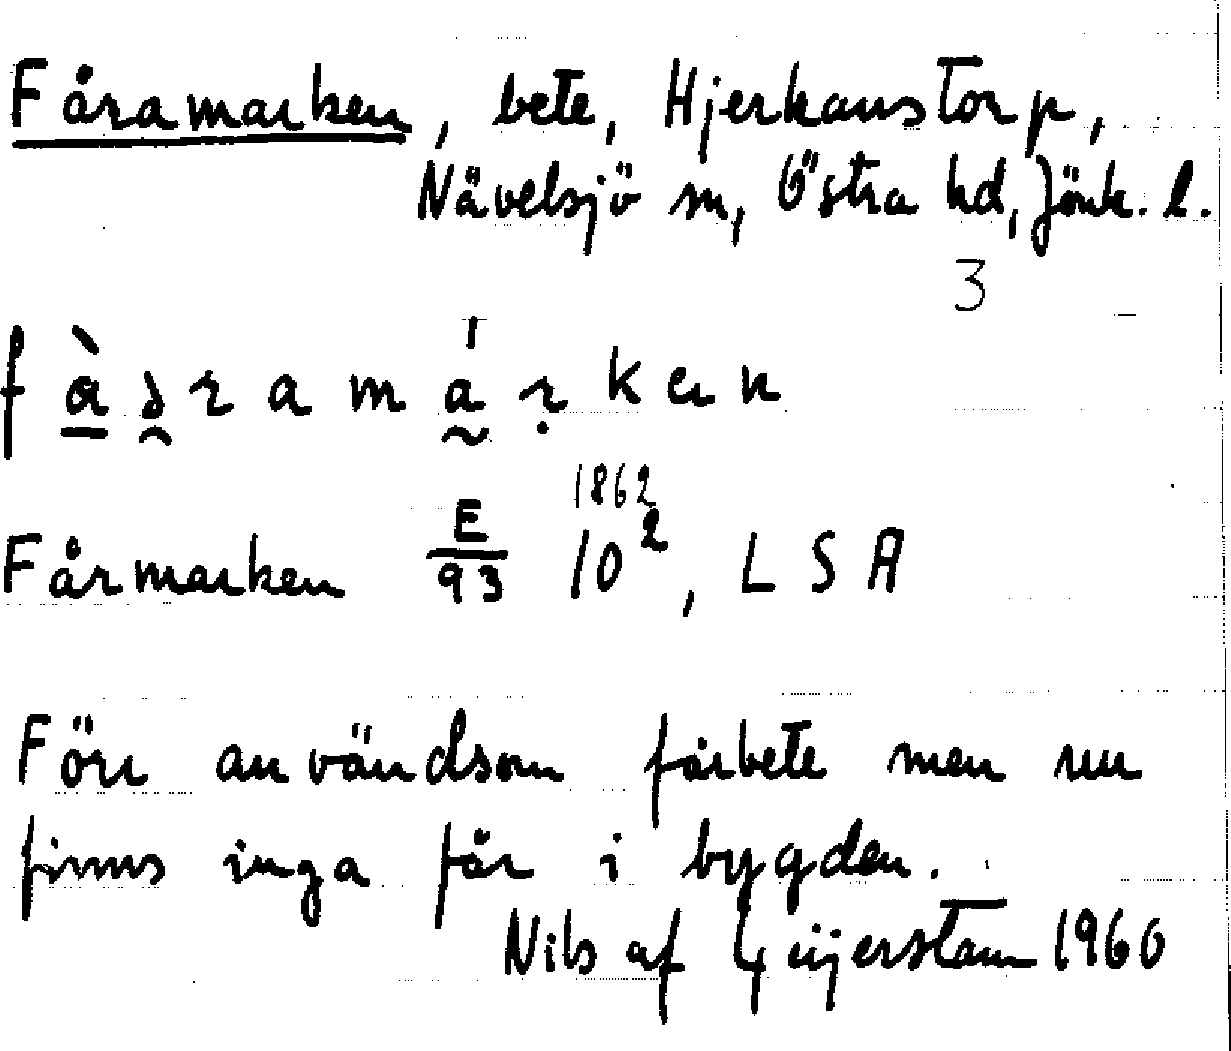 Fåramarken, bete, Hjerkanstorp,
Nävelsjö sn, Östra hd, Jönk. l.
3
Fårmarken E/93 10², LSA
1862
Förr användsom fårbete men nu
finns inga får i bygden.
Nils af Geijerstam 1960